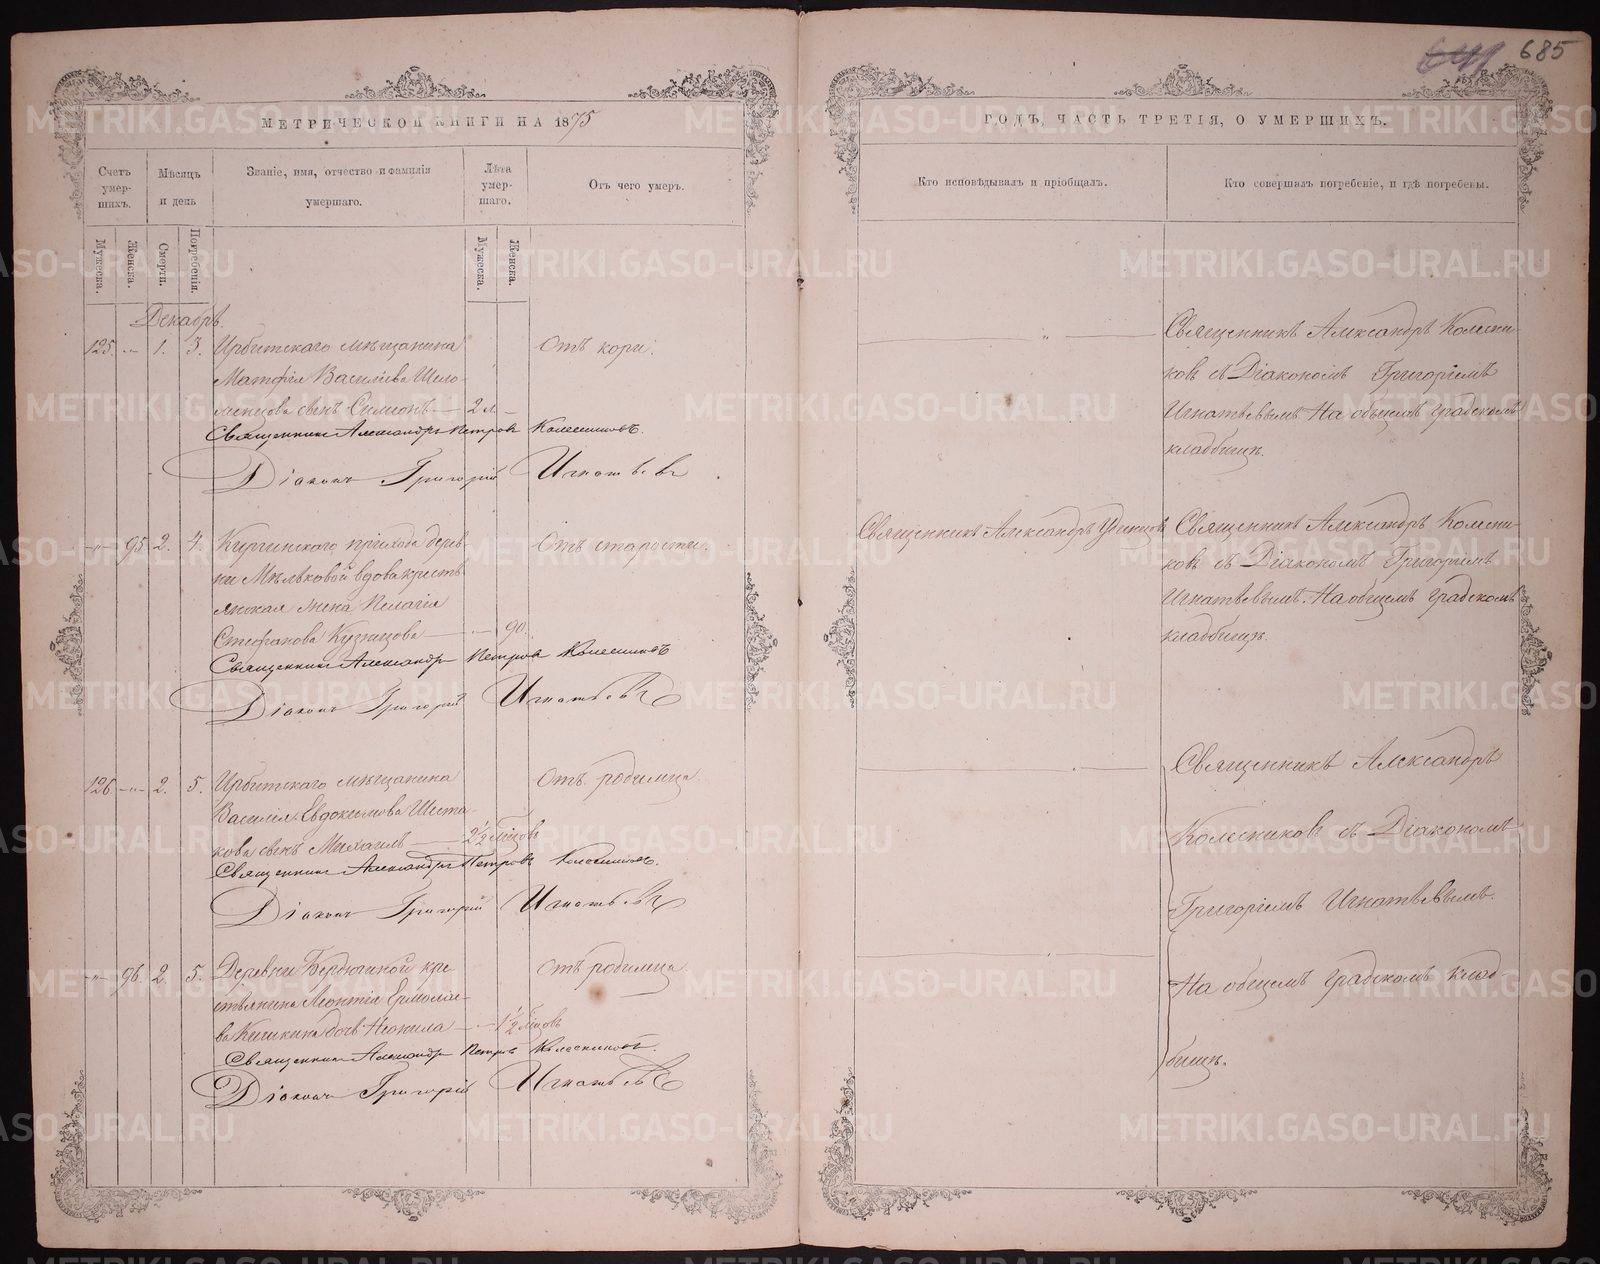 685
МЕТРИЧЕСКОЙ КНИГИ НА 1875
ГОДЪ, ЧАСТЬ ТРЕТІЯ, О УМЕРШИХЪ.
Счетъ умер-
шихъ.
Мѣсяцъ
и день
Званіе, имя, отчество и фамилія
умершаго.
Лѣта
умер-
шаго.
Отъ чего умеръ.
Мужеска.
Женска.
Смерти.
Погребенія.
Мужеска.
Женска.
Декабрь.
125. -"- 1. 3. Ирбитскаго мѣщанина Отъ кори.
Матфія Васильева Шело-
сынъ Симеонъ — 2 л. -
Священникъ Александръ Петровъ Колесниковъ.
Діаконъ Григорій Игнатьевъ
-"- 95 2. 4. Киргинскаго прихода дерев- Отъ старости.
ни Мѣльковой вдова кресть
янская жена Пелагія
Стефанова Кузнецова — -"- 90.
Священникъ Александръ Петровъ Колесниковъ
Діаконъ Григорій Игнатьевъ
126 -"- 2. 5. Ирбитскаго мѣщанина Отъ родимца
Василія Евдокимова Шеста-
кова сынъ Михаилъ — 2 1/2 мѣсцовъ
Священникъ Александръ Петровъ Колесниковъ.
Діаконъ Григорій Игнатьевъ
-"- 96. 2. 5. Деревни Бердюгиной кре Отъ родимца
стьянина Леонтія Ермолае-
ва Кишкина дочь Неонила — 1 1/2 мѣсцовъ
Священникъ Александръ Петровъ Колесниковъ.
Діаконъ Григорій Игнатьевъ
Кто исповѣдывалъ и пріобщалъ.
Кто совершалъ погребеніе, и гдѣ погребены.
Священникъ Александръ Колесни-
ковъ съ Діакономъ Григоріемъ
Игнатьевымъ На общемъ градскомъ
кладбищѣ.
Священникъ Александръ Удинцовъ
Священникъ Александръ Колесни-
ковъ съ Діакономъ Григоріемъ
Игнатьевымъ. На общемъ градскомъ
кладбищѣ.
Священникъ Александръ
Колесниковъ съ Діакономъ
Григоріемъ Игнатьевымъ.
На общемъ градскомъ клад-
бищѣ.
METRIKI.GASO-URAL.RU